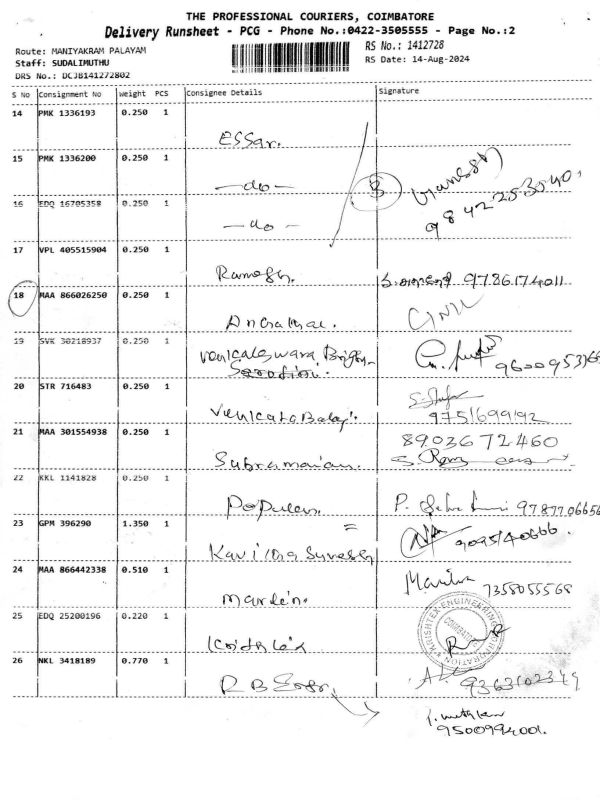 THE PROFESSIONAL COURIERS, COIMBATORE
Delivery Runsheet - PCG - Phone No.:0422-3505555 - Page No.:2
Route: MANIYAKRAM PALAYAM
RS No.: 1412728
Staff: SUDALIMUTHU
RS Date: 14-Aug-2024
DRS No.: DCJB141272802
S No Consignment No Weight PCS Consignee Details Signature
14 PMK 1336193 0.250 1
Essar.
15 PMK 1336200 0.250 1
-do-
Ganesan
9842253040
16 EDQ 16705358 0.250 1
-do-
17 VPL 405515904 0.250 1
Ramesh. 9786174011
18 MAA 866026250 0.250 1
19 SVK 30218937 0.250 1
Venkateswara
Sarojini. 9600953166
20 STR 716483 0.250 1
Venkata Balaji. 9751699192
21 MAA 301554938 0.250 1
8903672460
Subramanian.
22 KKL 1141828 0.250 1
Popular. 9787706656
23 GPM 396290 1.350 1
Kavitha Suresh 9095140666.
24 MAA 866442338 0.510 1
Martin. 7358055568
25 EDQ 25200196 0.220 1
KRISHTEX ENGINEERING CORPORATION
COIMBATORE
26 NKL 3418189 0.770 1
R B Engg. 9363102349
9500994001.